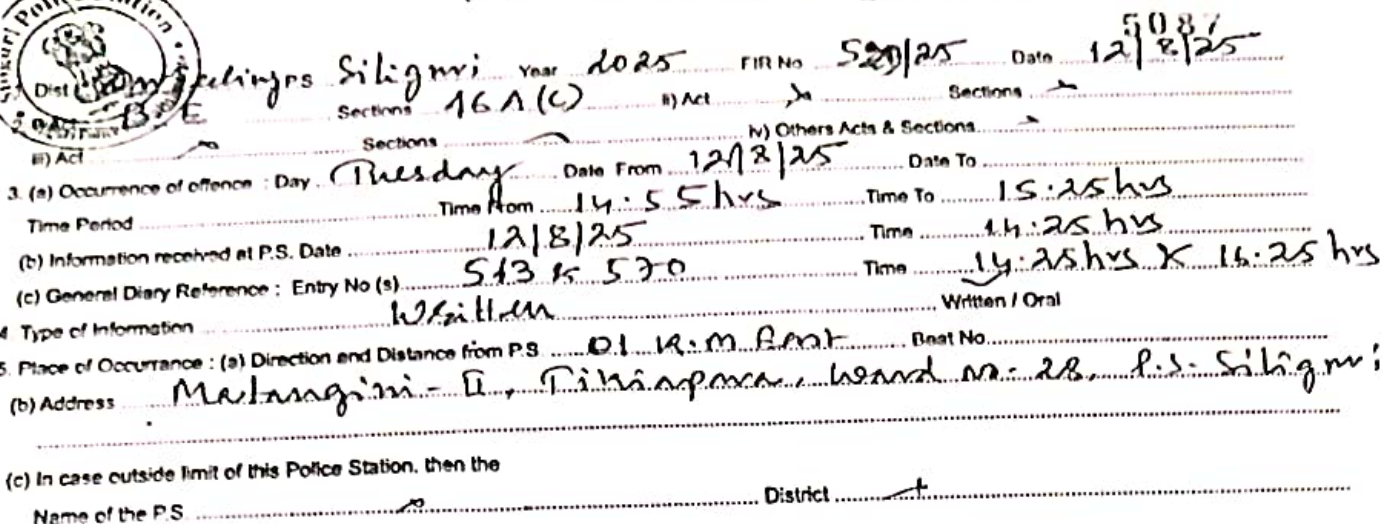 5087
Dist Siliguri Year 2025 FIR No Date 12/8/25
B.E Sections 16A(C) ii) Act Sections
iii) Act Sections iv) Others Acts & Sections
3. (a) Occurrence of offence : Day Tuesday Date From 12/8/25 Date To
Time Period Time from 14.55 hrs Time To 15.25 hrs
(b) Information received at P.S. Date 12/8/25 Time
(c) General Diary Reference : Entry No (s) Time 14.25 hrs
4 Type of Information Written Written / Oral
5. Place of Occurrance : (a) Direction and Distance from P.S 01 K.M East Beat No
(b) Address Matangini - II, Ward no - 28, P.S. Siliguri
(c) In case outside limit of this Police Station, then the
Name of the P.S District